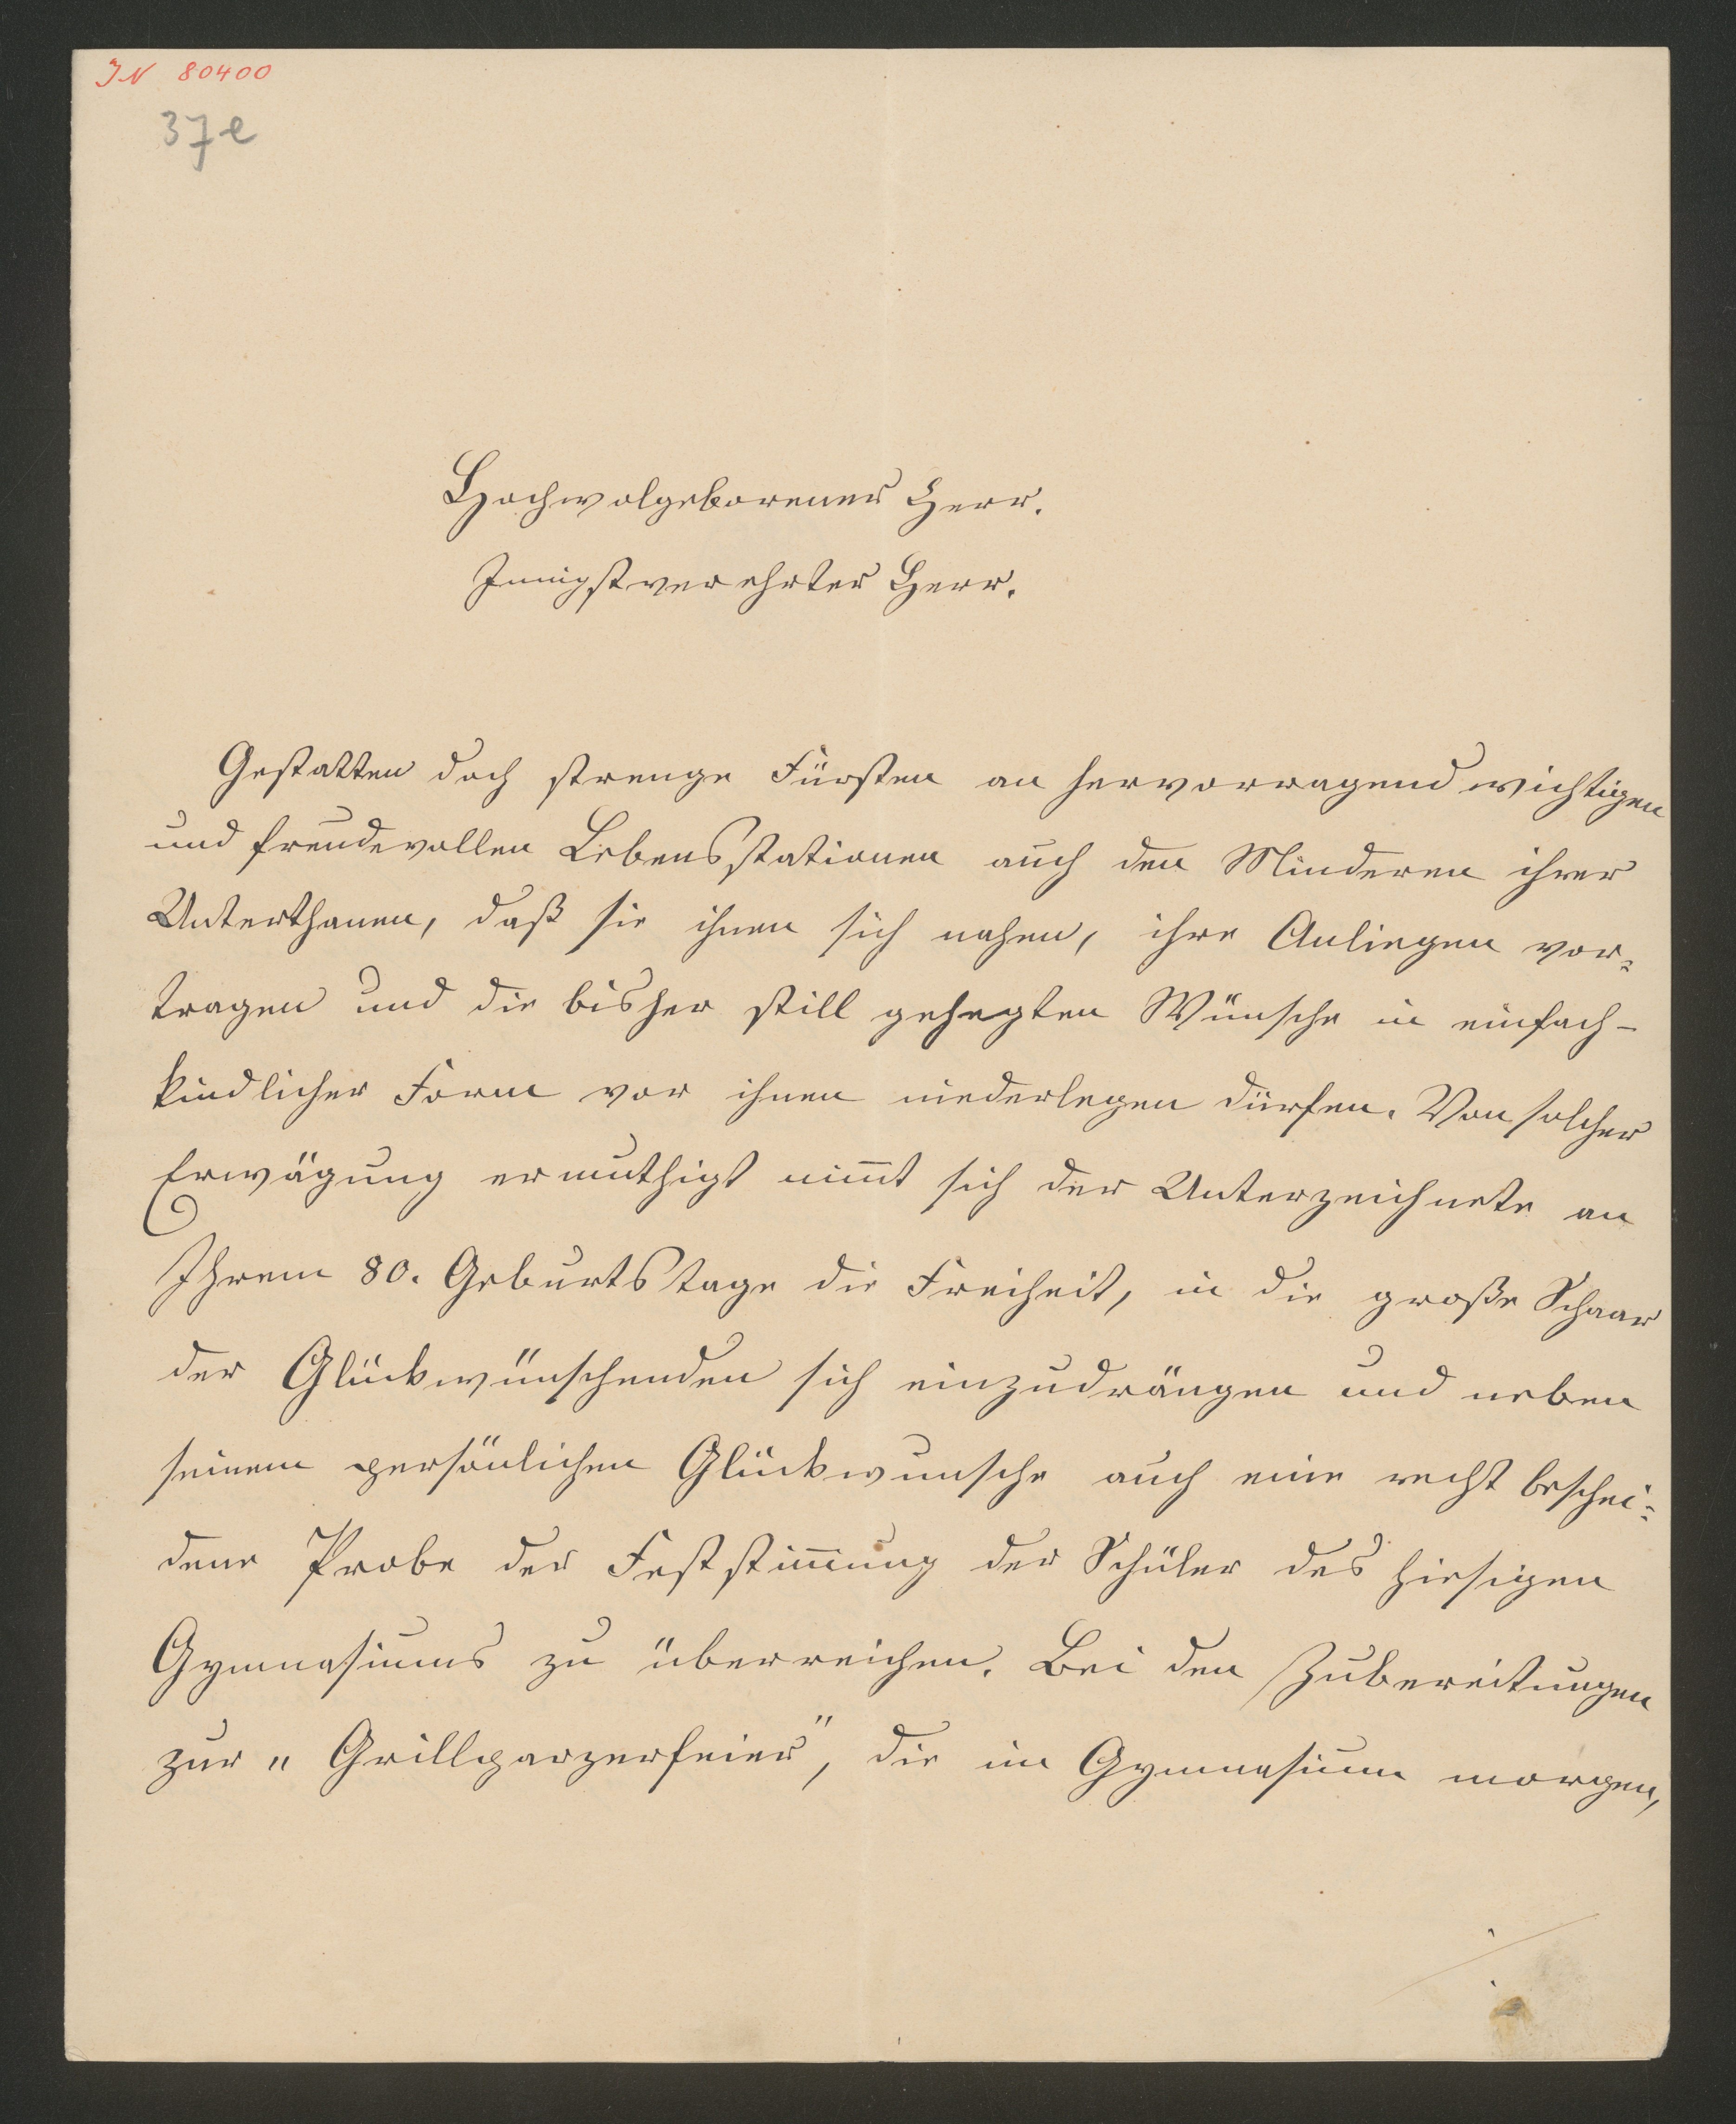 IN 80400
37e
Hochwolgeborener Herr.
Innigstverehrter Herr.
Gestatten doch strenge Fürsten an hervorragend wichtigen
und freudevollen Lebensstationen auch den Minderen ihrer
Unterthanen, daß sie ihnen sich nahen, ihre Anliegen vor=
tragen und die bisher still gehegten Wünsche in einfach-
kindlicher Form vor ihnen niederlegen dürfen. Von solcher
Erwägung ermuthigt nim̄t sich der Unterzeichnete an
Ihrem 80. Geburtstage die Freiheit, in die große Schaar
der Glückwünschenden sich einzudrängen und neben
seinem persönlichen Glückwunsche auch eine recht beschei=
dene Probe der Feststim̄ung der Schüler des hiesigen
Gymnasiums zu überreichen. Bei den Zubereitungen
zur „Grillparzerfeier", die im Gymnasium morgen,